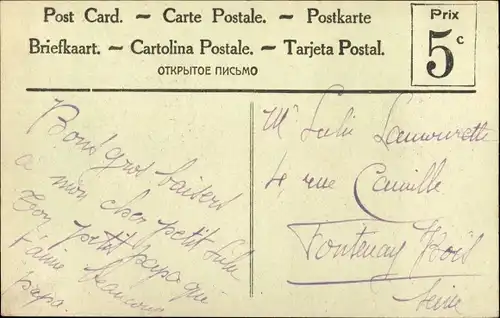 Post Card. – Carte Postale. – Postkarte
Briefkaart. – Cartolina Postale. – Tarjeta Postal.
ОТКРЫТОЕ ПИСЬМО
Prix
5 c
Bons gros baisers
a mon cher petit Lulu
Ton petit papa qui
t'aime beaucoup
papa.
Mr Lulu
4 rue Camille
Fontenay s/Bois
Seine